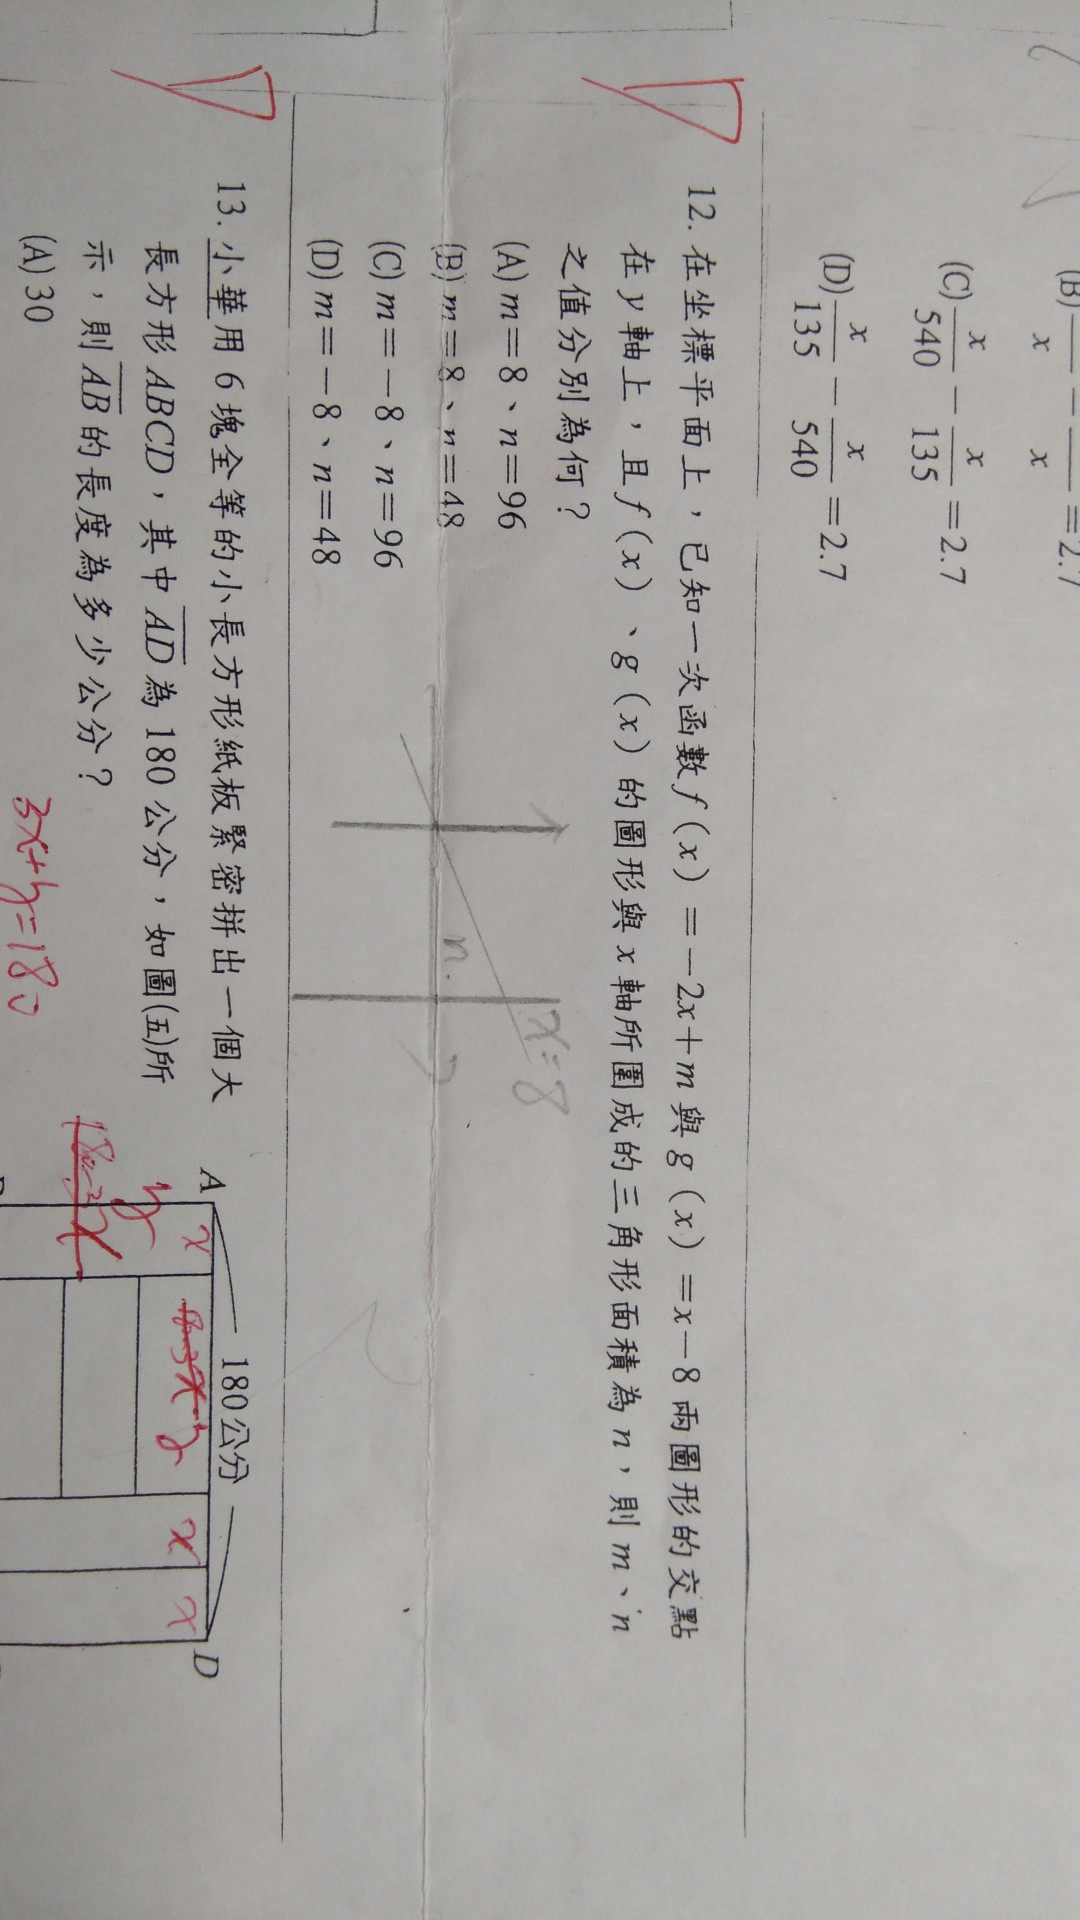 (B) x − x =2.7
(C) x/540 − x/135 =2.7
(D) x/135 − x/540 =2.7
12. 在坐標平面上，已知一次函數 f(x)=−2x+m 與 g(x)=x−8 兩圖形的交點
在 y 軸上，且 f(x)、g(x) 的圖形與 x 軸所圍成的三角形面積為 n，則 m、n
之值分別為何？
(A) m=8、n=96
(B) m=8、n=48
(C) m=−8、n=96
(D) m=−8、n=48
n.
x=8
13. 小華用 6 塊全等的小長方形紙板緊密拼出一個大
長方形 ABCD，其中 AD 為 180 公分，如圖(五)所
示，則 AB 的長度為多少公分？
(A) 30
3x+y=180
A
180公分
D
x
y
x
x